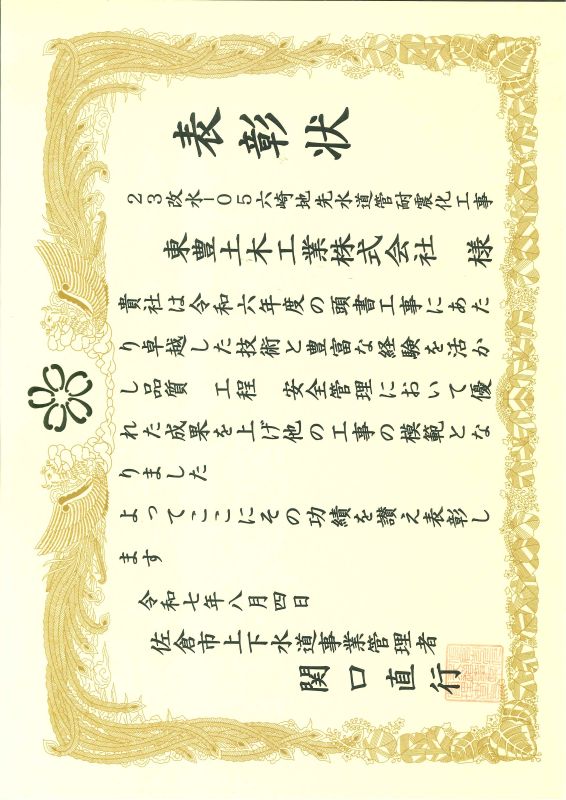 表彰状
23改水-05六崎地先水道管耐震化工事
東豊土木工業株式会社 様
貴社は令和六年度の頭書工事にあた
り卓越した技術と豊富な経験を活か
し品質 工程 安全管理において優
れた成果を上げ他の工事の模範とな
りました
よってここにその功績を讃え表彰し
ます
令和七年八月四日
佐倉市上下水道事業管理者
関口直行